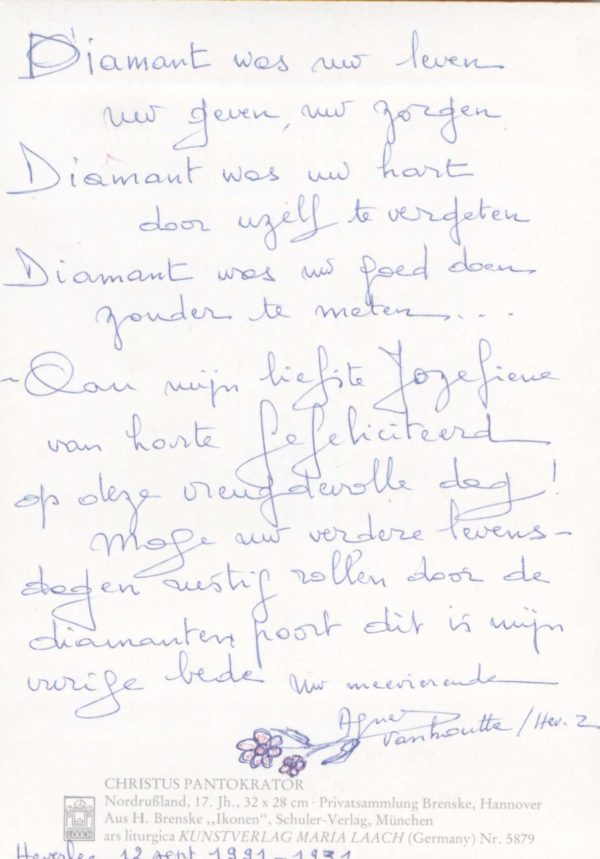 Diamant was uw leven
uw geven, uw zorgen
Diamant was uw hart
door uzelf te vergeten
Diamant was uw goed doen
zonder te meten....
- Aan mijn liefste Jozefiene
van harte gefeliciteerd
op deze vreugdevolle dag!
Moge uw verdere levens-
dagen rustig rollen door de
diamanten poort dit is mijn
vurige bede uw meevierende
Agnes
Vanhoutte / Hev. 2
CHRISTUS PANTOKRATOR
Nordrußland, 17. Jh., 32 x 28 cm · Privatsammlung Brenske, Hannover
Aus H. Brenske „Ikonen", Schuler-Verlag, München
ars liturgica KUNSTVERLAG MARIA LAACH (Germany) Nr. 5879
LAACH
Heverlee 12 sept 1991 - 1931